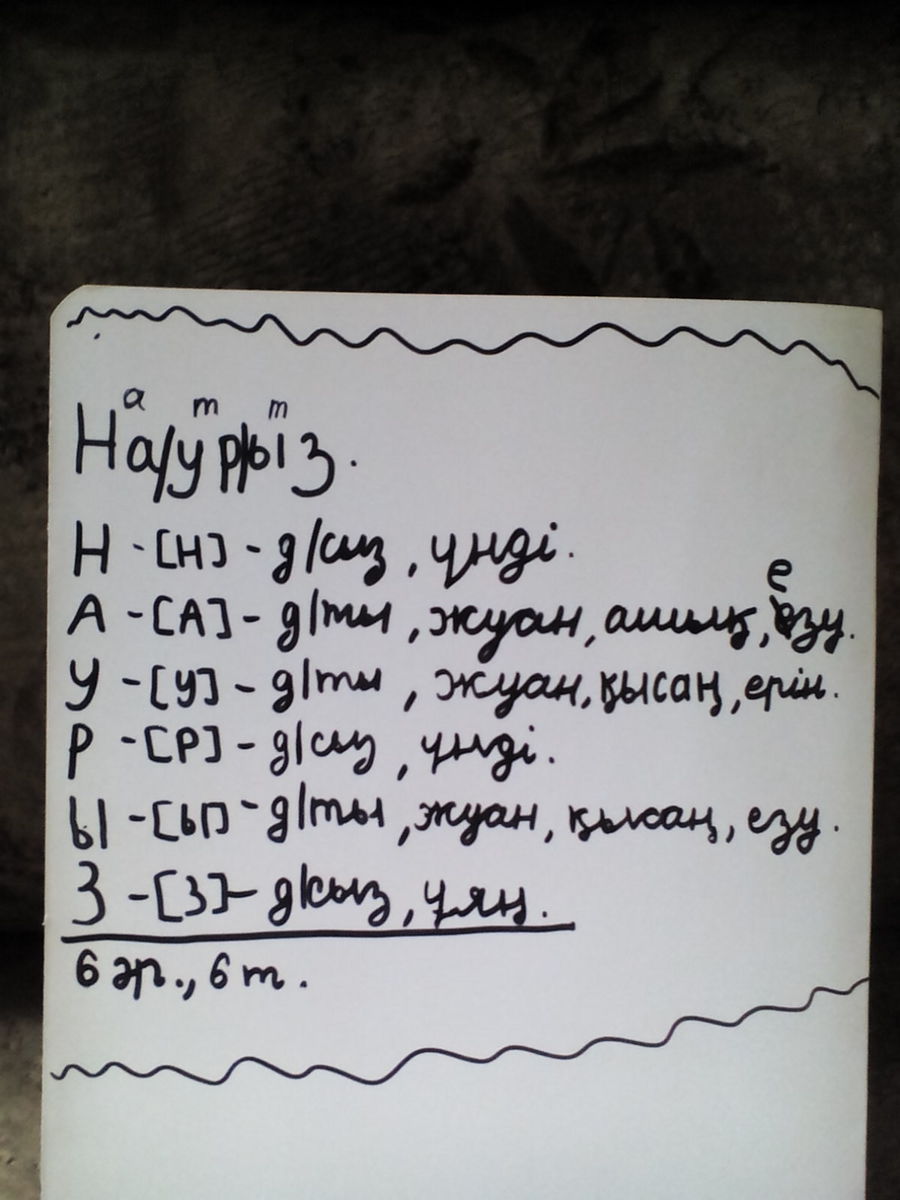 а т т
На/ур/ыз.
Н - [Н] - д/сыз, үнді.
А - [А] - д/ты, жуан, ашық, езу.
У - [У] - д/ты, жуан, қысаң, ерін.
Р - [Р] - д/сыз, үнді.
Ы - [Ы] - д/ты, жуан, қысаң, езу.
З - [З] - д/сыз, ұяң.
6 әр., 6 т.